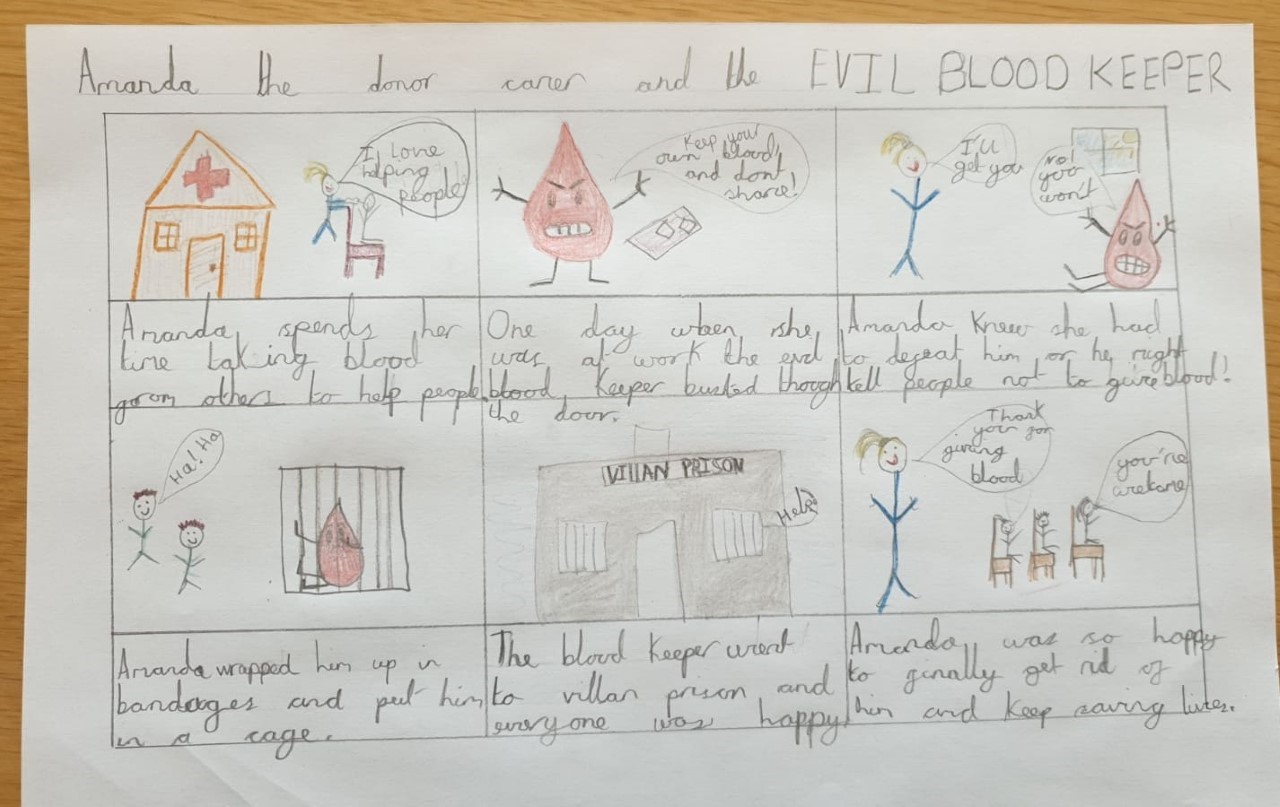 Amanda the donor carer and the EVIL BLOOD KEEPER
I love
helping
people
Keep you
own blood,
and dont
share!
I'll
get you
no!
you
won't
Amanda spends her
time taking blood
from others to help people.
One day when she
was at work the evil
blood keeper busted though
the door.
Amanda knew she had
to defeat him or he might
tell people not to give blood!
Ha! Ha
VILLAN PRISON
Help
Thank
you for
giving
blood
you're
welcome
Amanda wrapped him up in
bandages and put him
in a cage.
The blood keeper went
to villan prison and
everyone was happy
Amanda was so happy
to finally get rid of
him and keep saving lives.